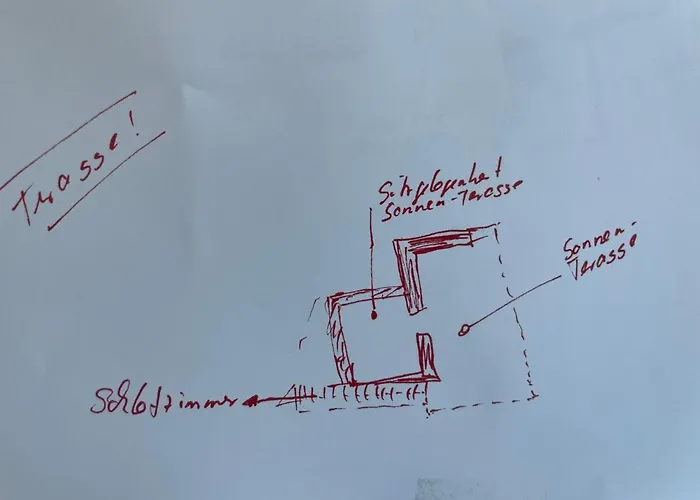 Trasse!
Sitzgelegenheit
Sonnen-Terasse
Sonnen-
Terasse
Schlafzimmer